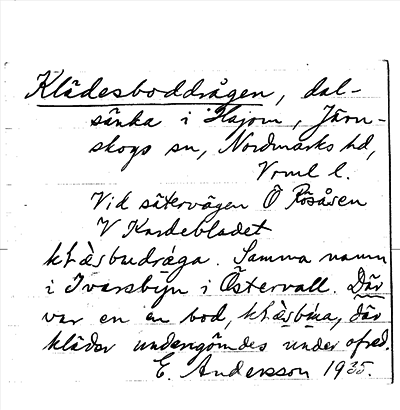 Klädesboddrågen, dal-
sänka i Hajom, Järn-
skogs sn, Nordmarks hd,
Vrml l.
Vid sätervägen Ö Rösåsen
V Kardebladet
Samma namn
i Ivarsbyn i Östervall. Där
var en bod, där
kläder undangömdes under ofred.
E. Andersson 1935.